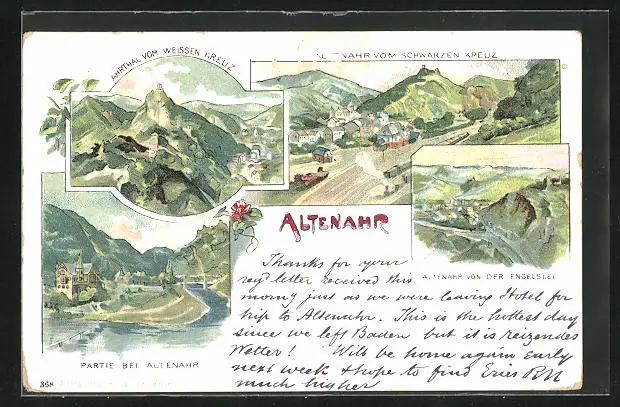 AHRTHAL VOM WEISSEN KREUZ
ALTENAHR VOM SCHWARZEN KREUZ
ALTENAHR
ALTENAHR VON DER ENGELSLEI
PARTIE BEI ALTENAHR
Thanks for your
letter received this
morng just as we were leaving Hotel for
trip to Altenahr. This is the hottest day
since we left Baden but it is reizendes
Wetter! Will be home again early
next week & hope to find
much higher
368